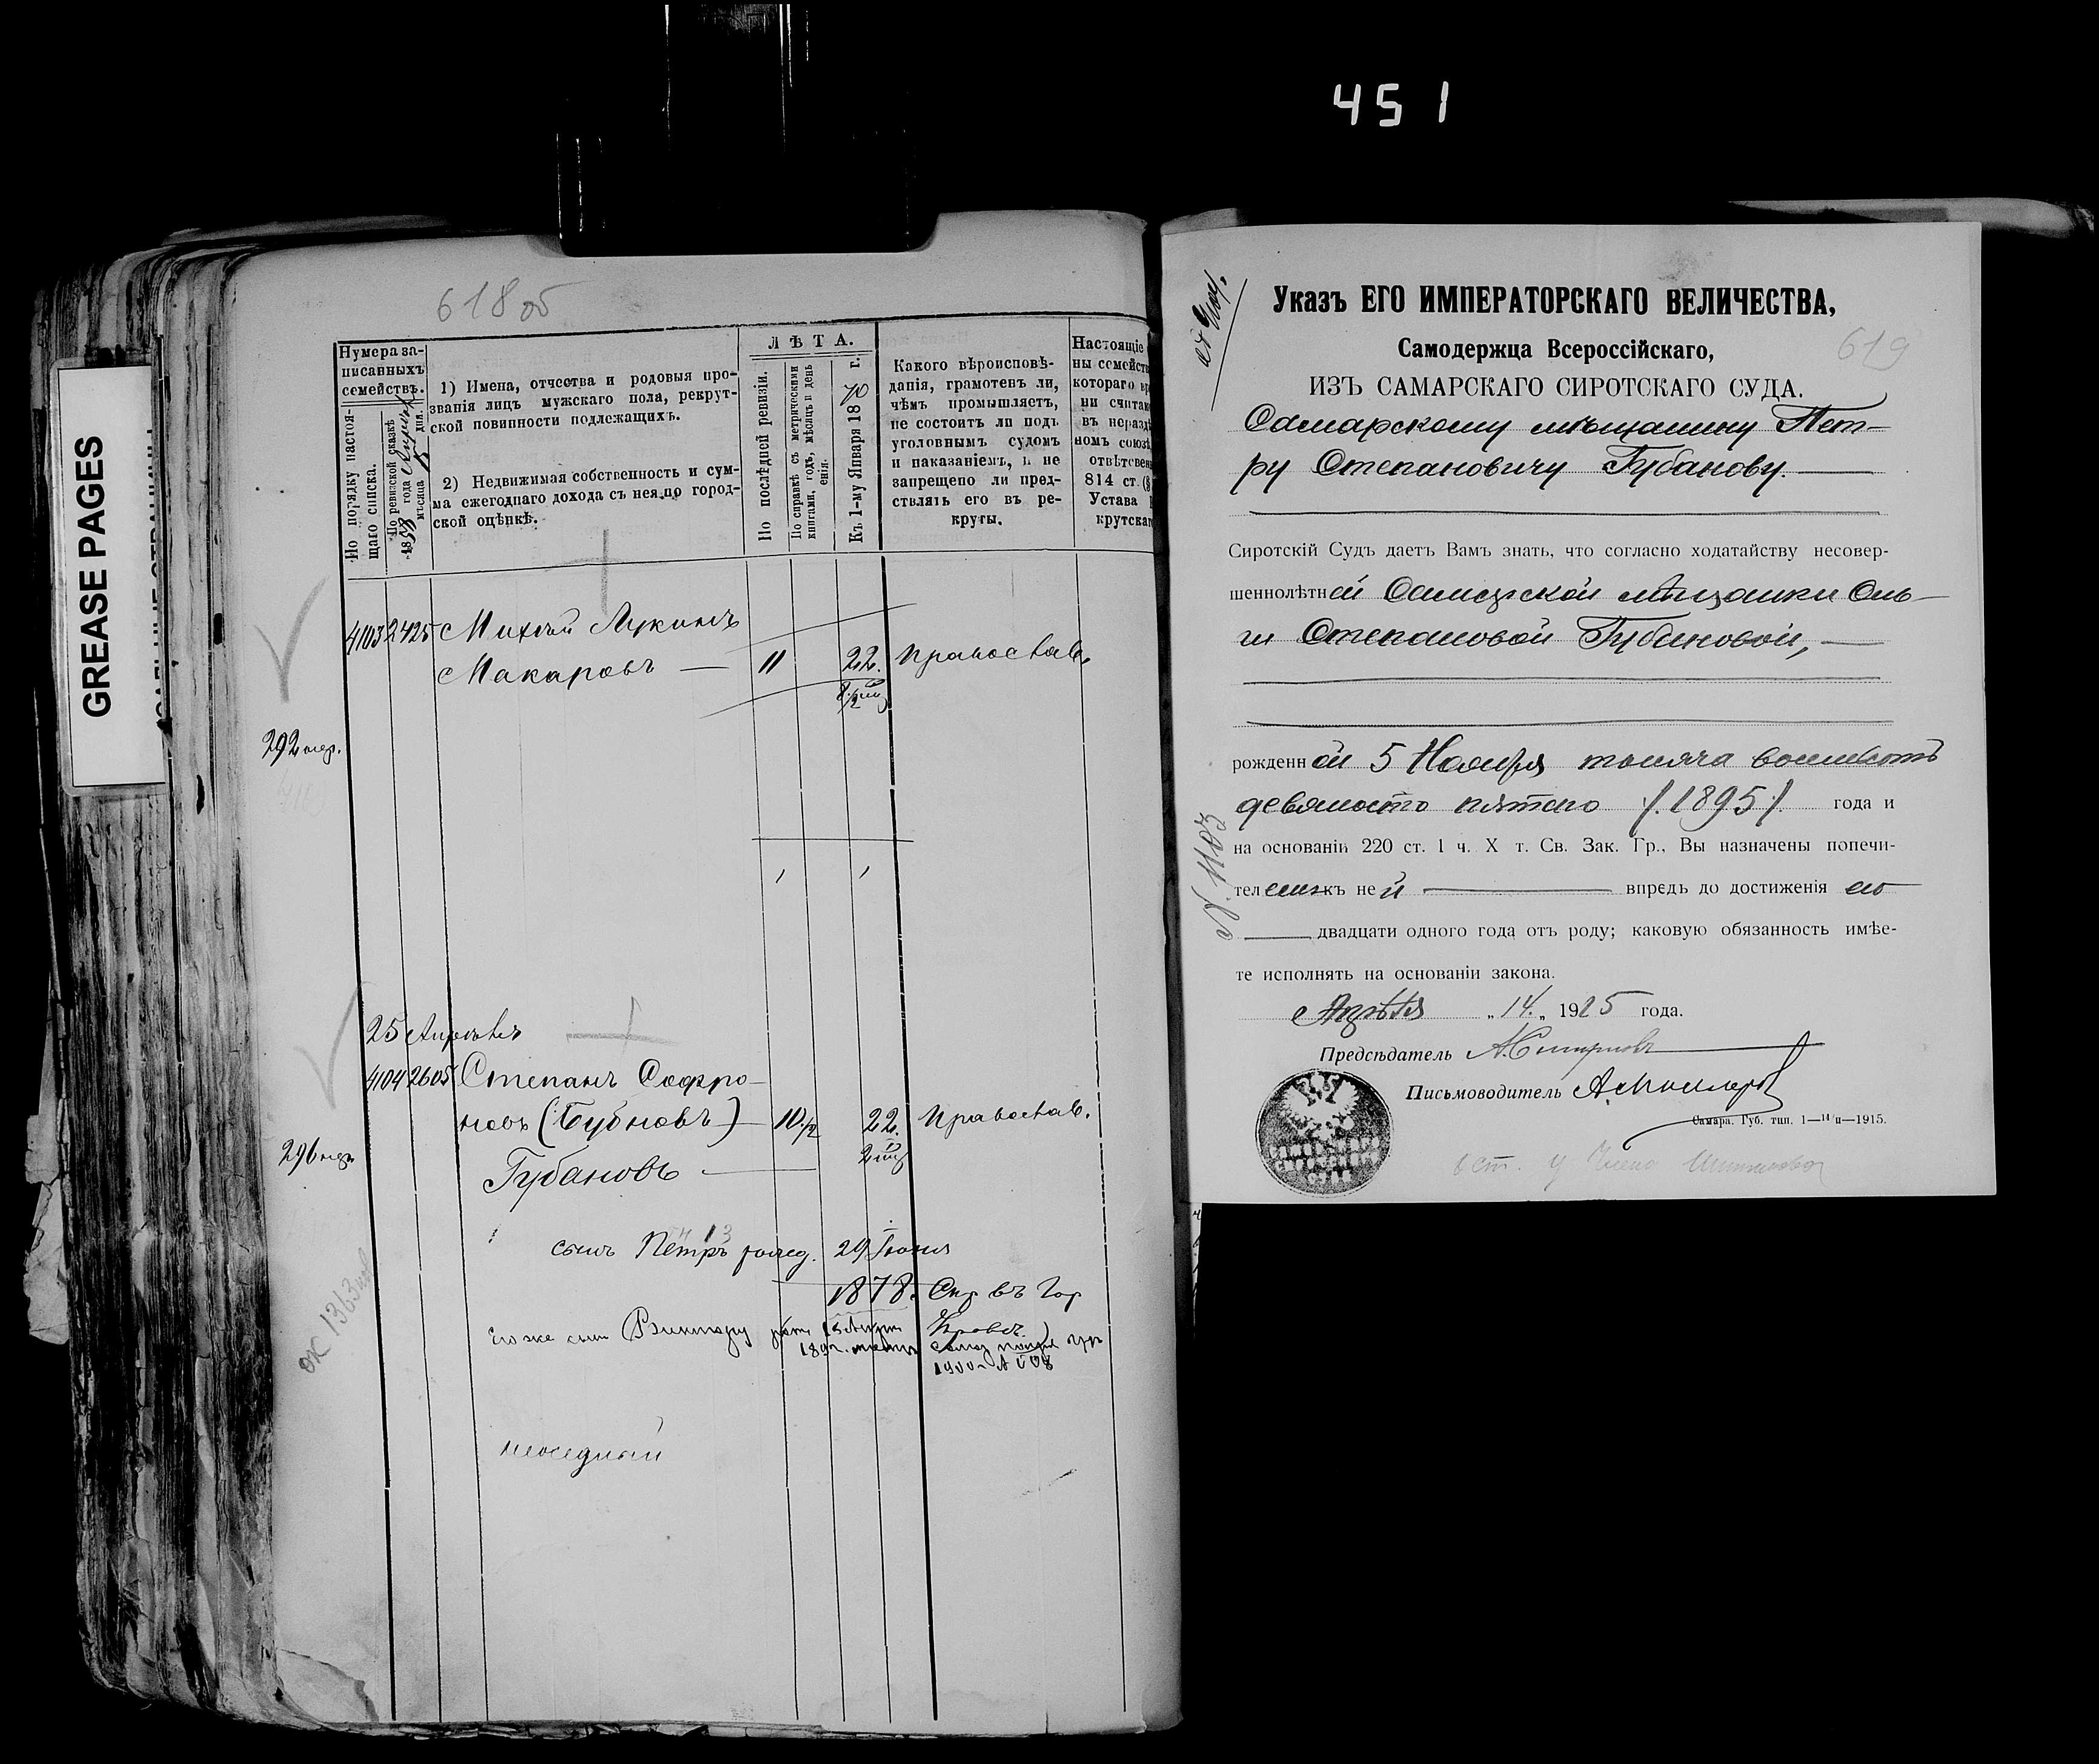 451
GREASE PAGES
618 об
Нумера за-
писанныхъ
семействъ.
По порядку настоя-
щаго списка.
По ревизской сказкѣ
1858 года
мѣсяца 15 дня.
1) Имена, отчества и родовыя про-
званія лицъ мужскаго пола, рекрут-
ской повинности подлежащихъ.
2) Недвижимая собственность и сум-
ма ежегоднаго дохода съ нея по город-
ской оцѣнкѣ.
ЛѢТА.
По послѣдней ревизіи.
По справкѣ съ метрическими
книгами, годъ, мѣсяцъ и день
Къ 1-му Января 1870 г.
Какого вѣроисповѣ-
данія, грамотенъ ли,
чѣмъ промышляетъ,
не состоитъ ли подъ
уголовнымъ судомъ
и наказаніемъ, и не
запрещено ли пред-
ствлять его въ ре-
круты.
Настоящіе
ны семейств
котораго
ни счита
въ неразд
номъ союз
отвѣтствен
814 ст.
Устава
крутскаг
4103 2425 Михаилъ Лукинъ
Макаровъ — 11 22. православ.
292
25 Апрѣль
4104 2605 Степанъ Софро-
новъ (Бубновъ) — 10 1/2 22. православ.
296
Губановъ —
сынъ Петръ рожд. 29 Іюня
1878. въ
Его же сынъ
ок 1363
неоседлый
619
Указъ ЕГО ИМПЕРАТОРСКАГО ВЕЛИЧЕСТВА,
Самодержца Всероссійскаго,
ИЗЪ САМАРСКАГО СИРОТСКАГО СУДА.
Самарскому мѣщанину Пет-
ру Степановичу Губанову.
Сиротскій Судъ даетъ Вамъ знать, что согласно ходатайству несовер-
шеннолѣтней Самарской мѣщанки Оль-
ги Степановой Губановой,
рожденной 5 Ноября тысяча восемьсотъ
девяносто пятаго /.1895./ года и
на основаніи 220 ст. 1 ч. X т. Св. Зак. Гр., Вы назначены попечи-
телемъ къ ней впредь до достиженія ею
двадцати одного года отъ роду; каковую обязанность имѣе-
те исполнять на основаніи закона.
Апрѣля „14.„ 1915 года.
Предсѣдатель А. Смирновъ
Письмоводитель
Самара. Губ. тип. 1—11/II—1915.
N. 1103